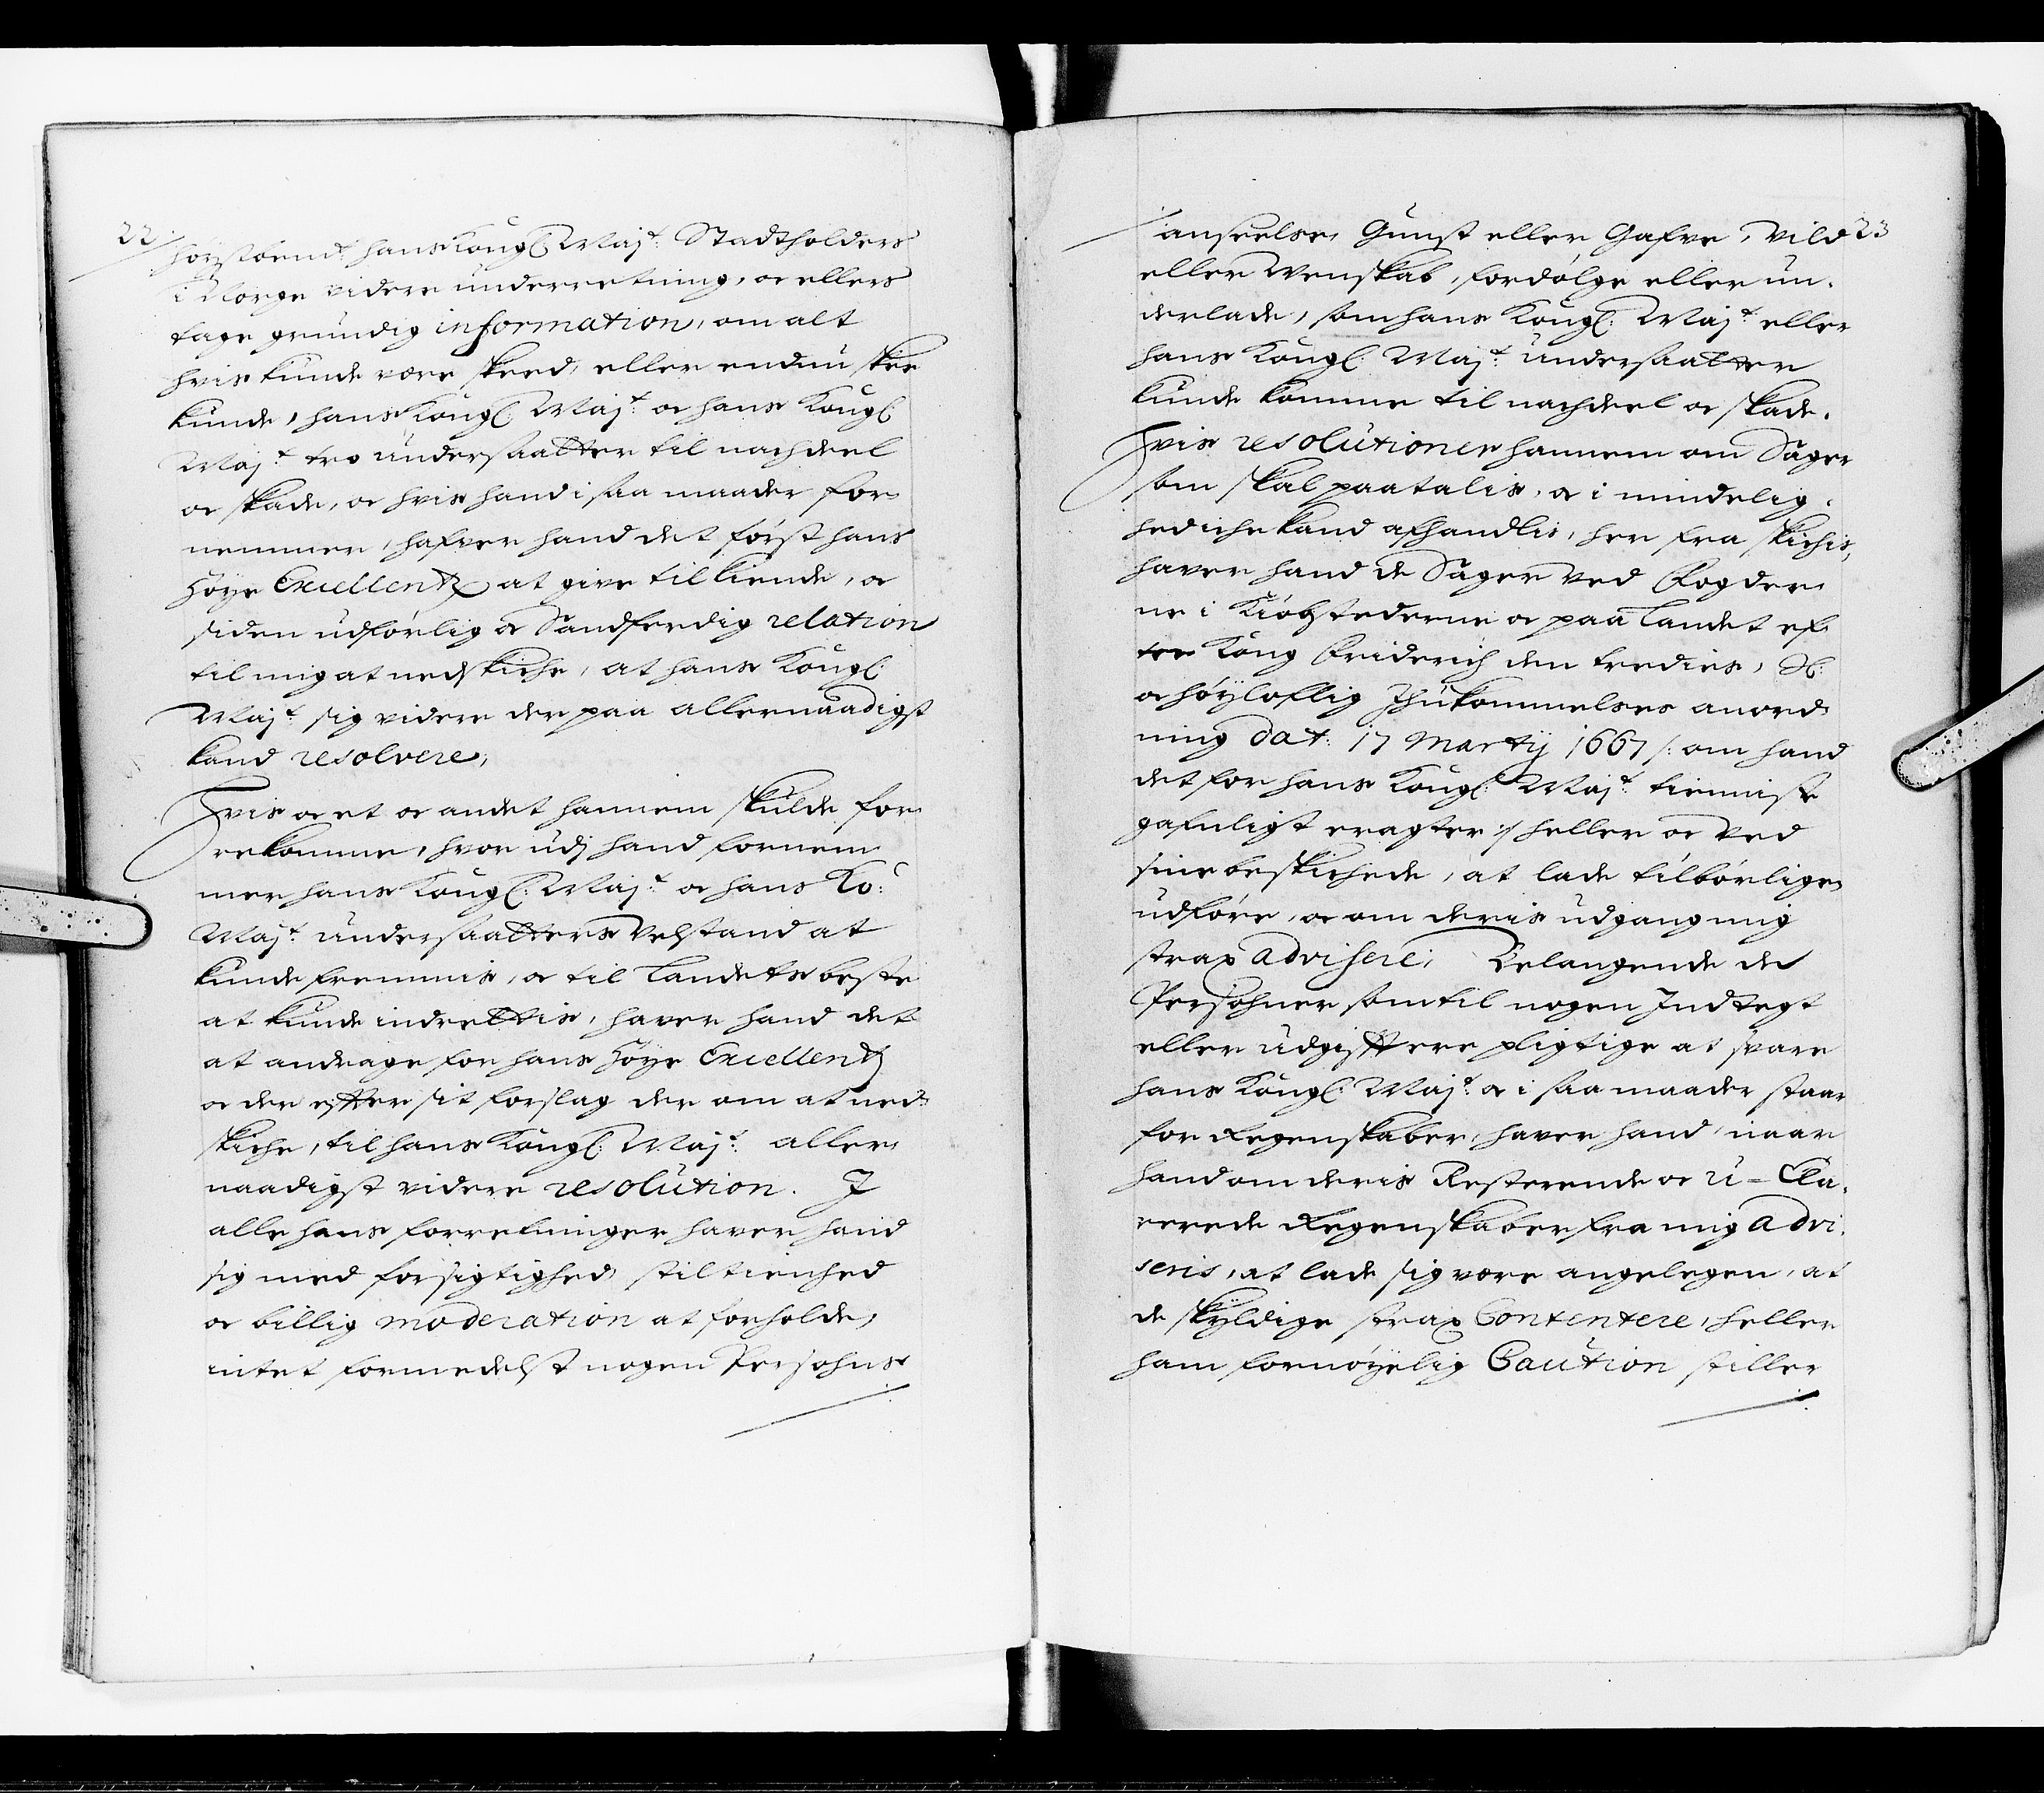 22.
høystbemt hans Kongl: Majt: Stadtholders
i Norge videre underretning, oc ellers
tage grundig information, om alt
hvis kunde være skeed, eller endnu skee
kunde, hans Kongl: Majt: oc hans Kongl:
Majt: tro Undersaatter til nachdeel
oc skade, oc hvis hand i saa maader for-
nemmer, hafver hand det først hans
høye Excellentz at give tilkiende, oc
siden udførlig oc Sandferdig relation
til mig at nedskiche, at hans Kongl:
Majt: sig videre der paa allernaadigst
kand resolvere,
Hvis oc et oc andet hannem skulde fo-
rekomme, hvor udj hand fornem-
mer hans Kongl: Majt: oc hans Ko:
Majt: Undersaatters velstand at
kunde fremmis, oc til Landets beste
at kunde indrettis, haver hand det
at andrage for hans høye Excellentz
oc der effter sit forslag der om at ned-
skiche, til hans Kongl: Majt: aller-
naadigst videre resolution. I
alle hans forretninger haver hand
sig med forsigtighed, stiltienhed
oc billig moderation at forholde,
intet formedelst nogen Persohns
anseelse, Gunst eller Gafve, Vild 23
eller Venskab, fordølge eller un-
derlade, som hans Kongl: Majt: eller
hans Kongl: Majt: Undersaatter
kunde komme til nachdeel oc skade.
Hvis resolutioner hannem om Sager
som skal paatalis, oc i mindelig-
hed iche kand afhandlis, her fra skichis,
haver hand de Sager ved Fogder-
ne i Kiøbstederne oc paa Landet ef-
ter Kong Friderich den tredies, Sl:
oc høyloflig Ihukommelses anord-
ning dat: 17 Martij 1667 /: om hand
det for hans Kongl: Majt: tienniste
gafnligst eragter :/ heller oc ved
sine beskichede, at lade tilbørligen
udføre, oc om deris udgang mig
strax advisere, Belangende de
Persohner som til nogen Indtegt
eller Udgifft ere pligtige at svare
hans Kongl: Majt: oc i saa maader staar
for Regenskaber, haver hand, naar
hand om deris Resterende oc U-Cla-
rerede Regenskaber fra mig advi-
seris, at lade sig være angelegen, at
de skÿldige strax Contentere, heller
ham fornøyelig Caution stiller